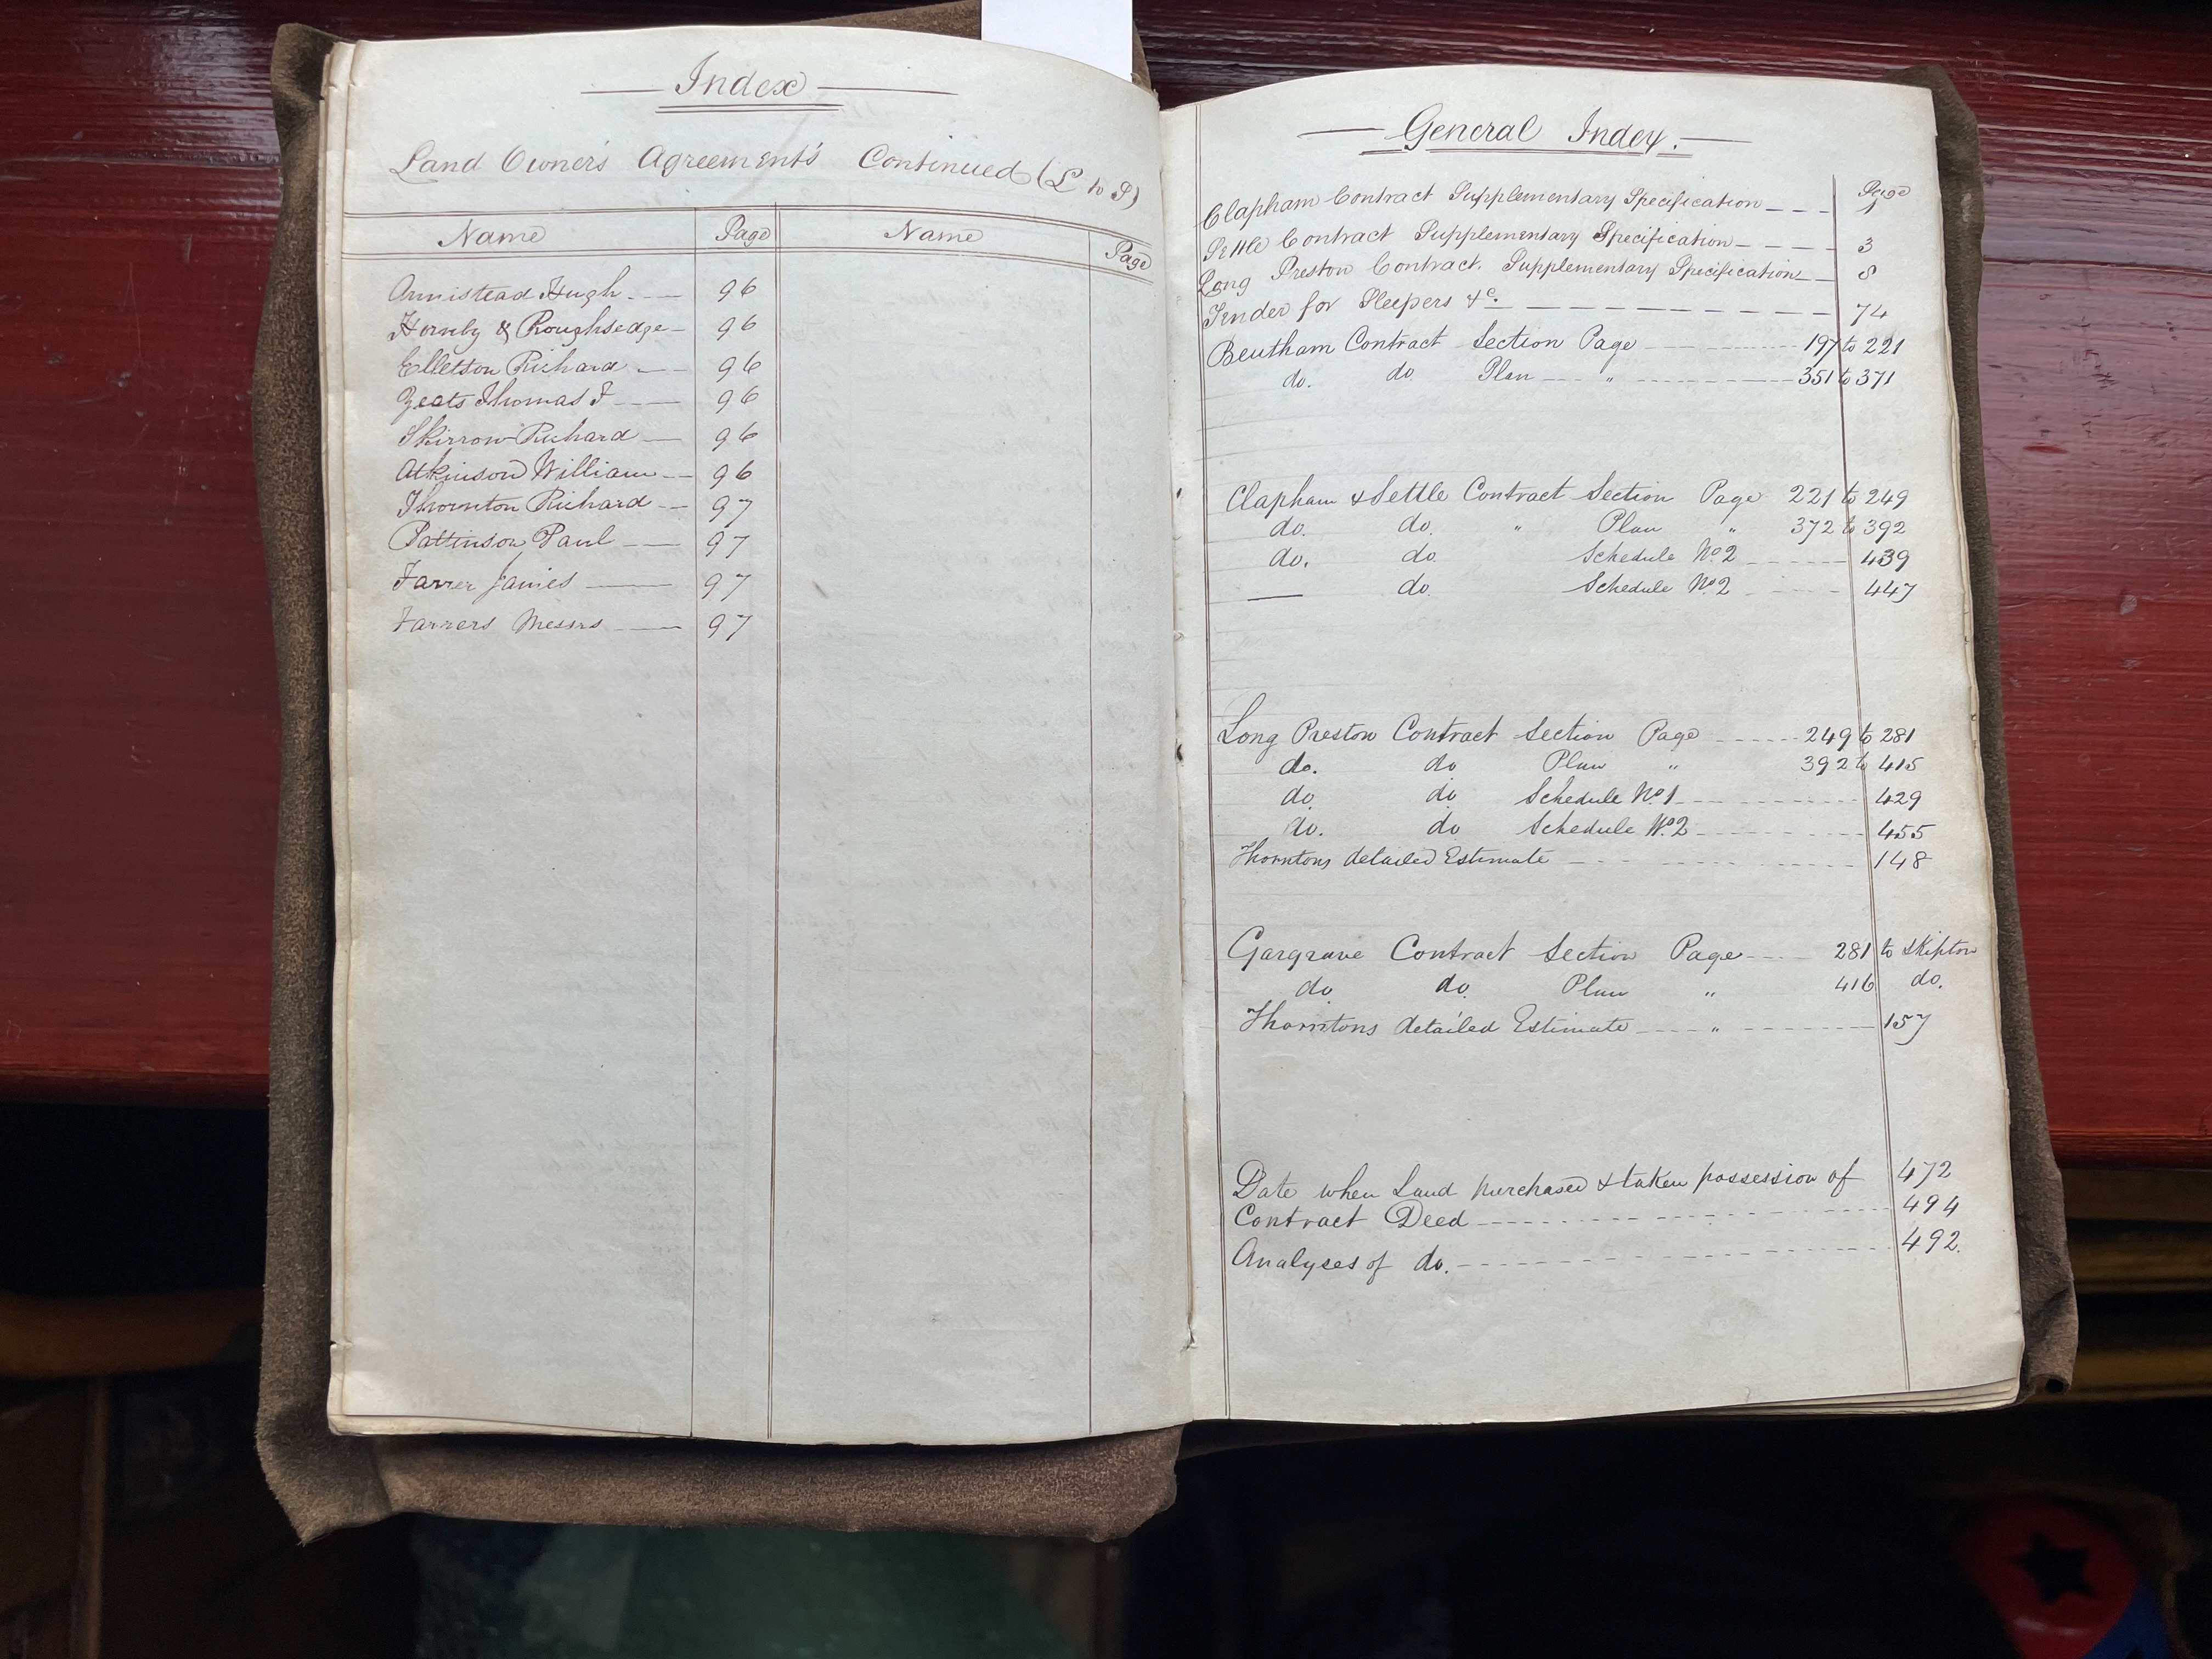 Index
Land Owner's Agreement's Continued (L to S)
Name Page Name Page
Armistead Hugh 96
Hornby & Roughsedge 96
Elletson Richard 96
Yeats Thomas F 96
Skirrow Richard 96
Atkinson William 96
Thornton Richard 97
Pattinson Paul 97
Farrer James 97
Farrers Messrs 97
General Index.
Page
Clapham Contract Supplementary Specification 1
Settle Contract Supplementary Specification 3
Long Preston Contract. Supplementary Specification 8
Tender for Sleepers &c. 74
Bentham Contract Section Page 197 to 221
do. do Plan " 351 to 371
Clapham & Settle Contract Section Page 221 to 249
do. do. " Plan " 372 to 392
do. do. Schedule No 2 439
do. Schedule No 2 447
Long Preston Contract Section Page 249 to 281
do. do Plan " 392 to 415
do. do Schedule No 1 429
do. do Schedule No 2 455
Thorntons detailed Estimate 148
Gargrave Contract Section Page 281 to Skipton
do do. Plan " 416 do.
Thorntons detailed Estimate " 157
Date when Land purchased & taken possession of 472
Contract Deed 494
Analyses of do. 492.